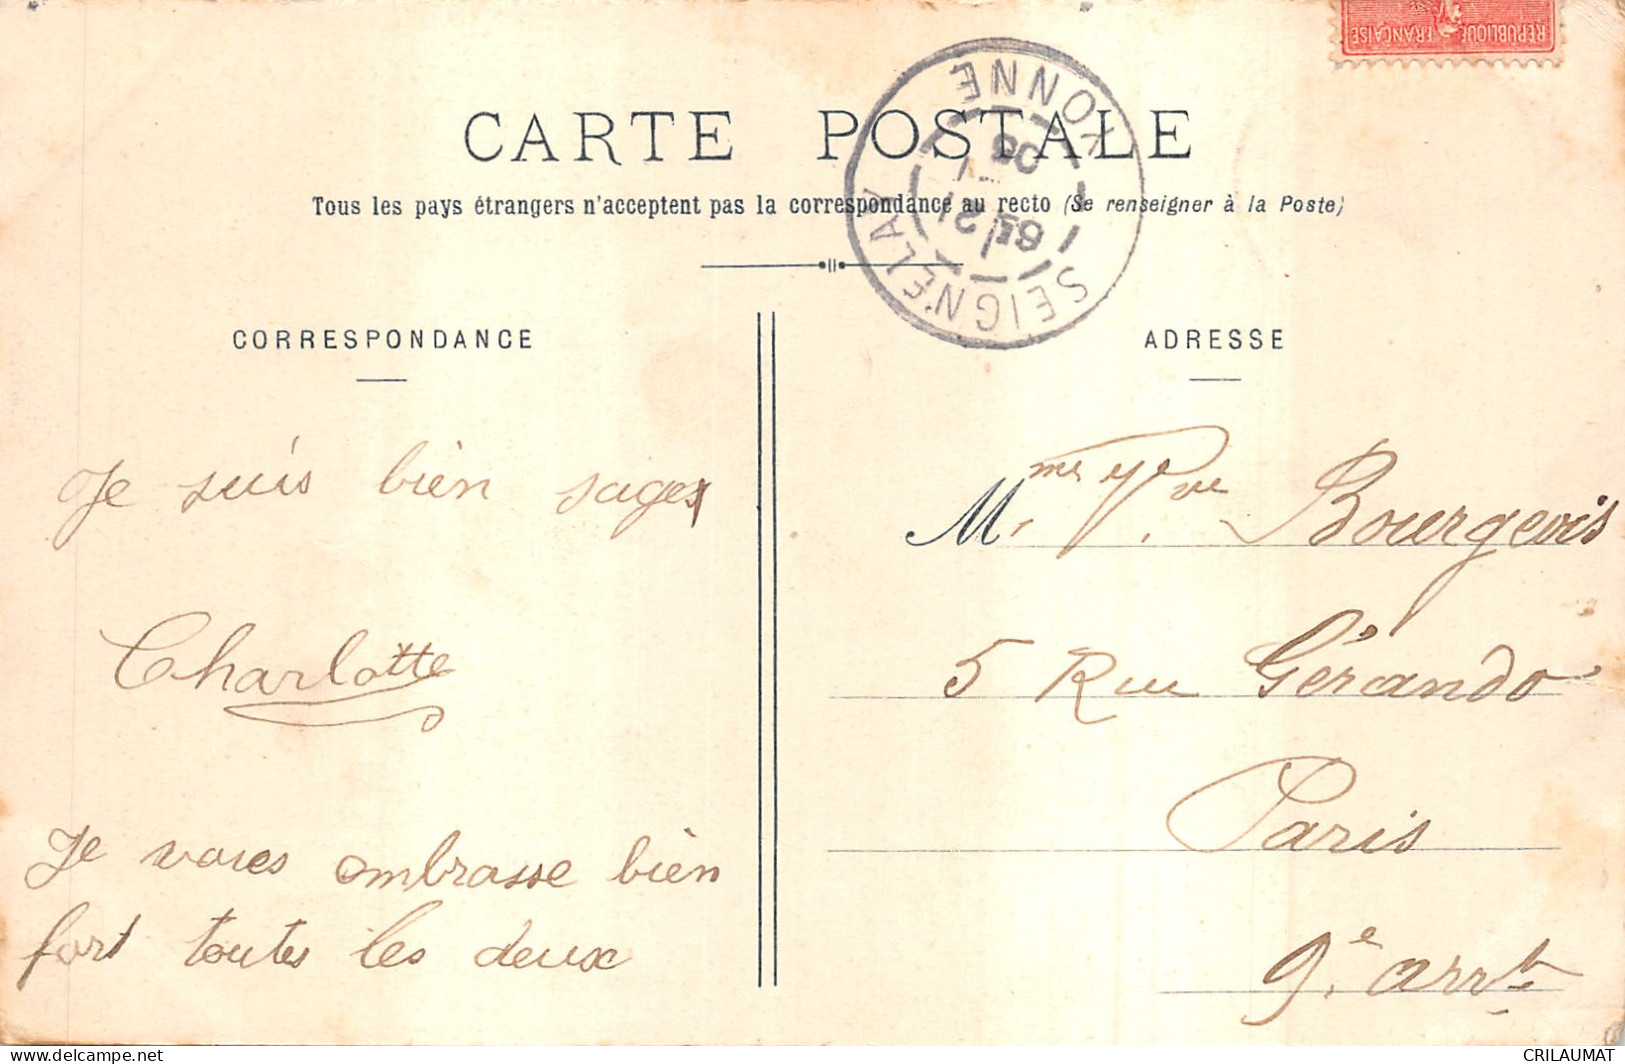 RÉPUBLIQUE FRANÇAISE
CARTE POSTALE
Tous les pays étrangers n'acceptent pas la correspondance au recto (Se renseigner à la Poste)
SEIGNELAY YONNE
6E 21
05
CORRESPONDANCE
Je suis bien sages
Charlotte
Je vous embrasse bien
fort toutes les deux
ADRESSE
M. me Vve Bourgeois
5 Rue Gérando
Paris
9e arrt
CRILAUMAT